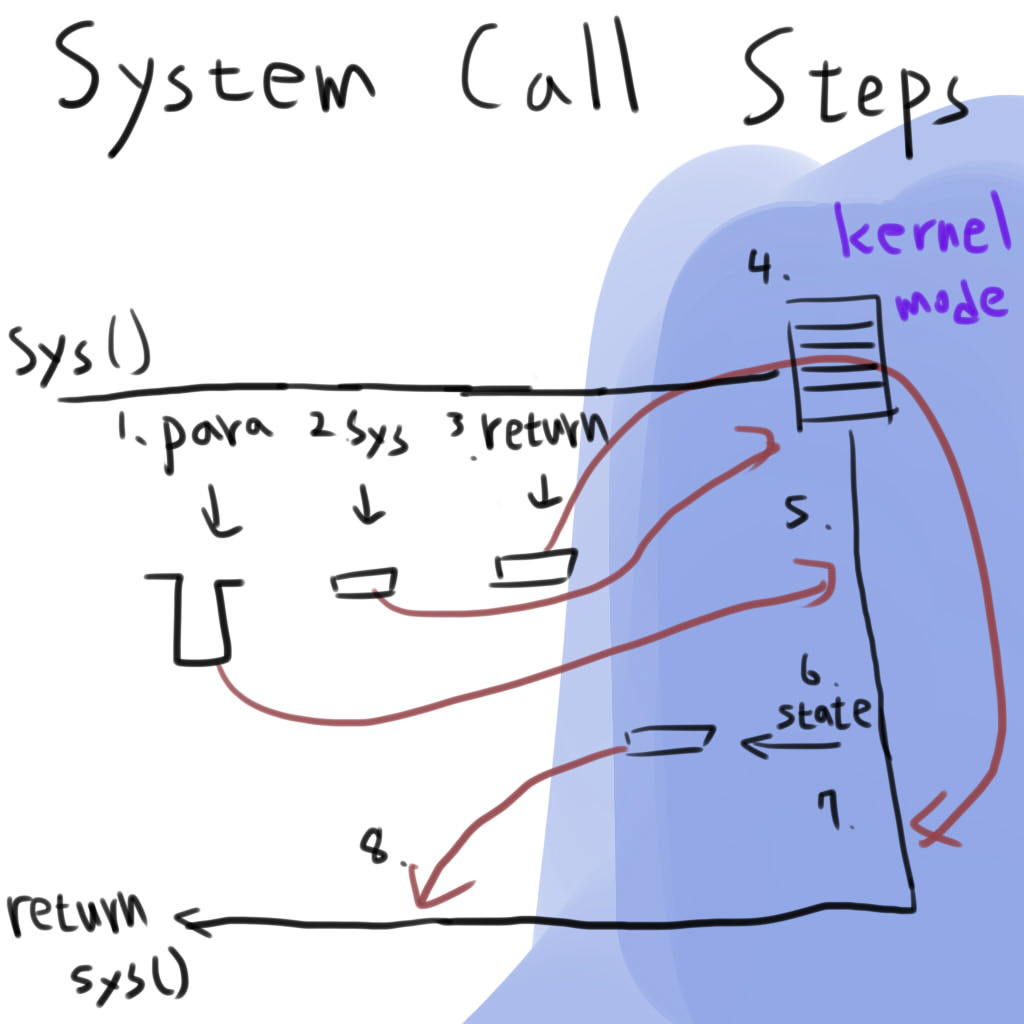 System Call Steps
kernel
mode
4.
sys()
1. para
2 sys
3. return
5.
6.
state
7.
8.
return
sys()